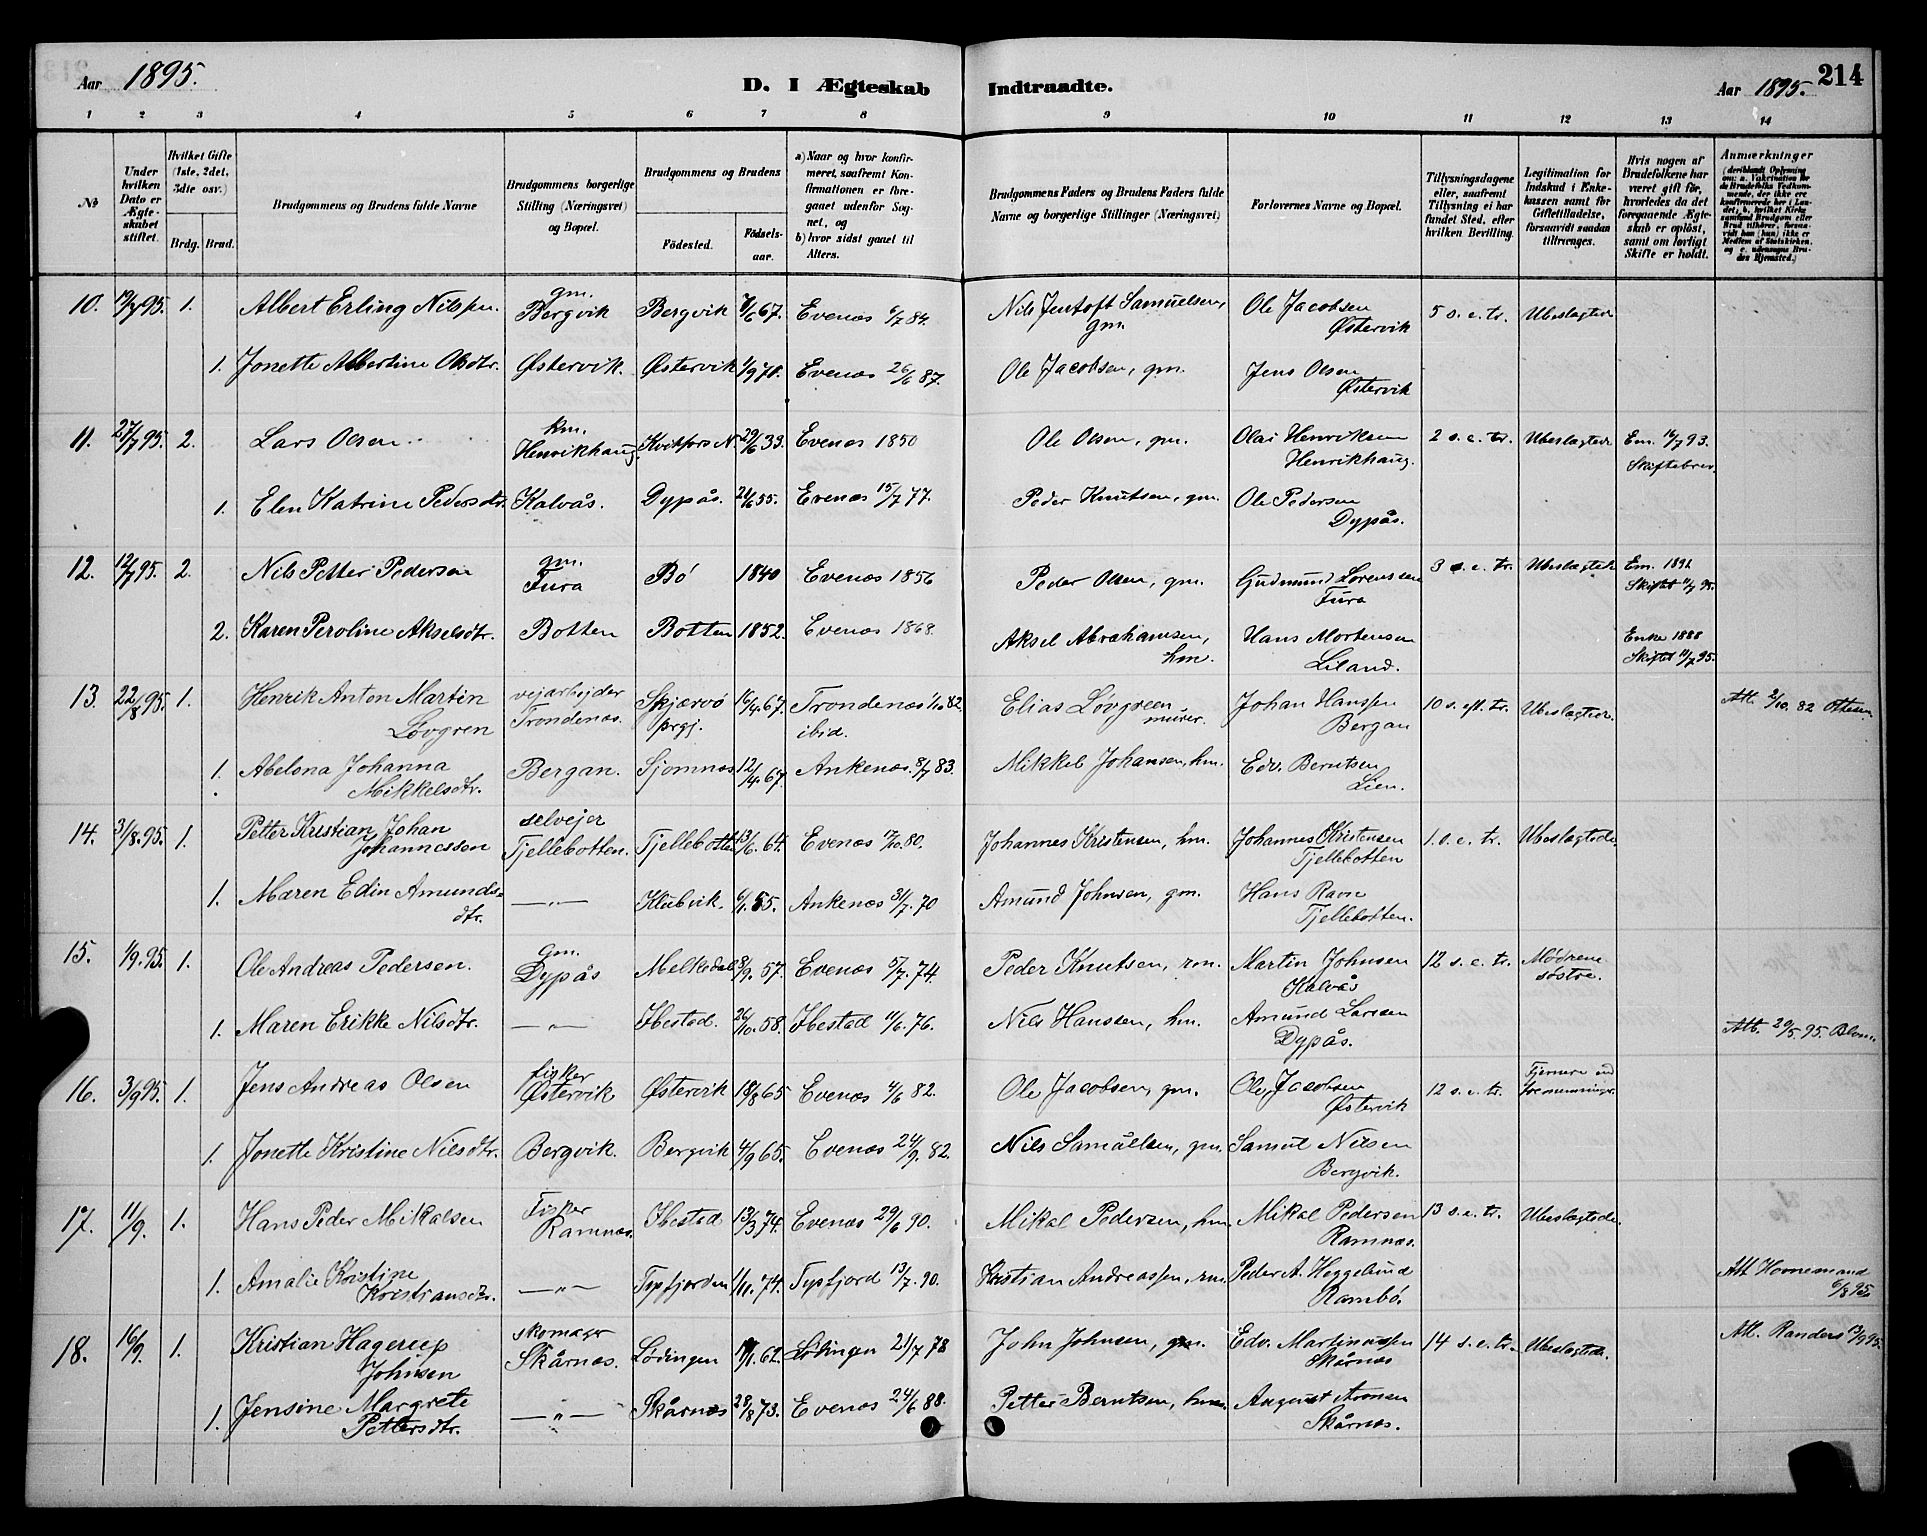 Aar 1895.
D. I Ægteskab Indtraadte.
Aar 1895. 214
1 2 3 4 5 6 7 8 9 10 11 12 13 14
No
Under hvilken Dato er Ægteskabet stiftet.
Hvilket Gifte (1ste, 2det, 3die osv.)
Brdg. Brud.
Brudgommens og Brudens fulde Navne
Brudgommens borgerlige Stilling (Næringsvei) og Bopæl.
Brudgommens og Brudens
Födested. Födsels-aar.
a) Naar og hvor konfirmeret, saafremt Konfirmationen er foregaaet udenfor Sognet, og
b) hvor sidst gaaet til Alters.
Brudgommens Faders og Brudens Faders fulde Navne og borgerlige Stillinger (Næringsvei)
Forlovernes Navne og Bopæl.
Tillysningsdagene eller, saafremt Tillysning ei har fundet Sted, efter hvilken Bevilling.
Legitimation for Indskud i Enkekassen samt for Giftetilladelse, forsaavidt saadan tiltrænges.
Hvis nogen af Brudefolkene har været gift för, hvorledes da det foregaaende Ægteskab er oplöst, samt om lovligt Skifte er holdt.
Anmærkninger
10. 19/7 95. 1. Albert Erling Nilssen. gm. Bergvik Bergvik 67. Evenæs 6/7 84. Nils Jentoft Samuelsen, gm. Ole Jacobsen Østervik 5 s. e. tr. Ubeslægtede
1. Jonette Albertine Olsdtr. Østervik. Østervik 1/9 70. Evenæs 26/6 87. Ole Jacobsen, gm. Jens Olsen Østervik
11. 27/7 95. 2. Lars Olsen km. Henrikhaug Kvitfors N. 29/6 33. Evenes 1850 Ole Olsen, gm. Olai Henriksen Henrikhaug. 2 s. e. tr. Ubeslægtede Em. 16/7 93. Skiftebrev.
1. Elen Katrine Pedersdtr. Kalvås. Dypås. 21/6 55. Evenæs 15/7 77. Peder Knutsen, gm. Ole Pedersen Dypås.
12. 12/7 95. 2. Nils Petter Pedersen gm. Fura Bö 1840 Evenæs 1856 Peder Olsen, gm. Gudmund Lorenssen Fura 3 s. e. tr. Ubeslægtede Em. 1891 Skiftet 11/7 95.
2. Karen Peroline Akselsdtr. Botten Botten 1852. Evenæs 1868. Aksel Abrahamsen, hm. Hans Mortensen Liland. Enke 1888 Skiftet 11/7 95.
13. 22/8 95. 1. Henrik Anton Martin Løvgren vejarbejder Trondenæs. Skjærvö prgj. 16/4 67. Trondenæs 1/10 82. ibid. Elias Løvgreen murer. Johan Hanssen Bergan 10 s. eft. tr. Ubeslægtede. Att. 2/10. 82 Ottesen
1. Abelona Johanna Mikkelsdtr. Bergan. Sjomnæs 12/4 67. Ankenæs. 8/7 83. Mikkel Johansen, hm. Edv. Berntsen Lien.
14. 31/8. 95. 1. Petter Kristian Johan Johannessen selvejer Tjellebotten. Tjellebotten 13/6. 64. Evenæs 17/10 80. Johannes Kristensen, hm. Johannes Kristensen Tjellebotten 1. s. e. tr. Ubeslægtede.
1. Maren Edin Amundsdtr. —"— Klubvik. 6/1. 55. Ankenæs 31/7. 70 Amund Johnsen, gm. Hans Ravn Tjellebotten.
15. 1/9. 95. 1. Ole Andreas Pedersen. gm. Dypås Melkedal 8/9. 57. Evenæs 5/7. 74. Peder Knutsen, rm. Martin Johnsen Kalvås 12 s. e. tr. Mødrene søstre.
1. Maren Erikke Nilsdtr. —"— Ibestad. 26/10. 58. Ibestad 11/6. 76. Nils Hanssen, hm. Amund Larsen Dypås. Att. 29/5. 95. Blom
16. 3/9 95. 1. Jens Andreas Olsen fisker Østervik Østervik 18/8 65 Evenæs 4/6 82. Ole Jacobsen, gm. Ole Jacobsen Østervik 12 s. e. tr. Fjernere end tremenninger.
1. Jonette Kristine Nilsdtr. Bergvik. Bergvik 4/9 65. Evenæs 24/9. 82. Nils Samuelsen, gm. Samuel Nilsen Bergvik.
17. 11/9. 1. Hans Peder Mikalsen Fisker Ramnæs. Ibestad 13/3 74. Evenæs 29/6 90. Mikal Pedersen, hm. Mikal Pedersen Ramnæs. 13 s. e. tr. Ubeslægtede.
1. Amalie Kristine Kristiansdtr. —"— Tysfjorden 1/11. 74. Tysfjord 13/7. 90. Kristian Andreassen, rm. Peder A. Heggelund Rambö. Att Hornemand 6/8 95
18. 16/9. 1. Kristian Hagerup Johnsen skomager Skårnæs. Lødingen 62. Lødingen 21/7 78 John Johnsen, gm. Edv. Martinussen Skårnæs 14 s. e. tr. Ubeslægtede. Att. Randers 13/9 95.
1. Jensine Margrete Pettersdtr. —"— Skårnæs 28/8 73. Evenæs 24/6 88. Petter Berntsen, hm. August Aronsen Skårnæs.